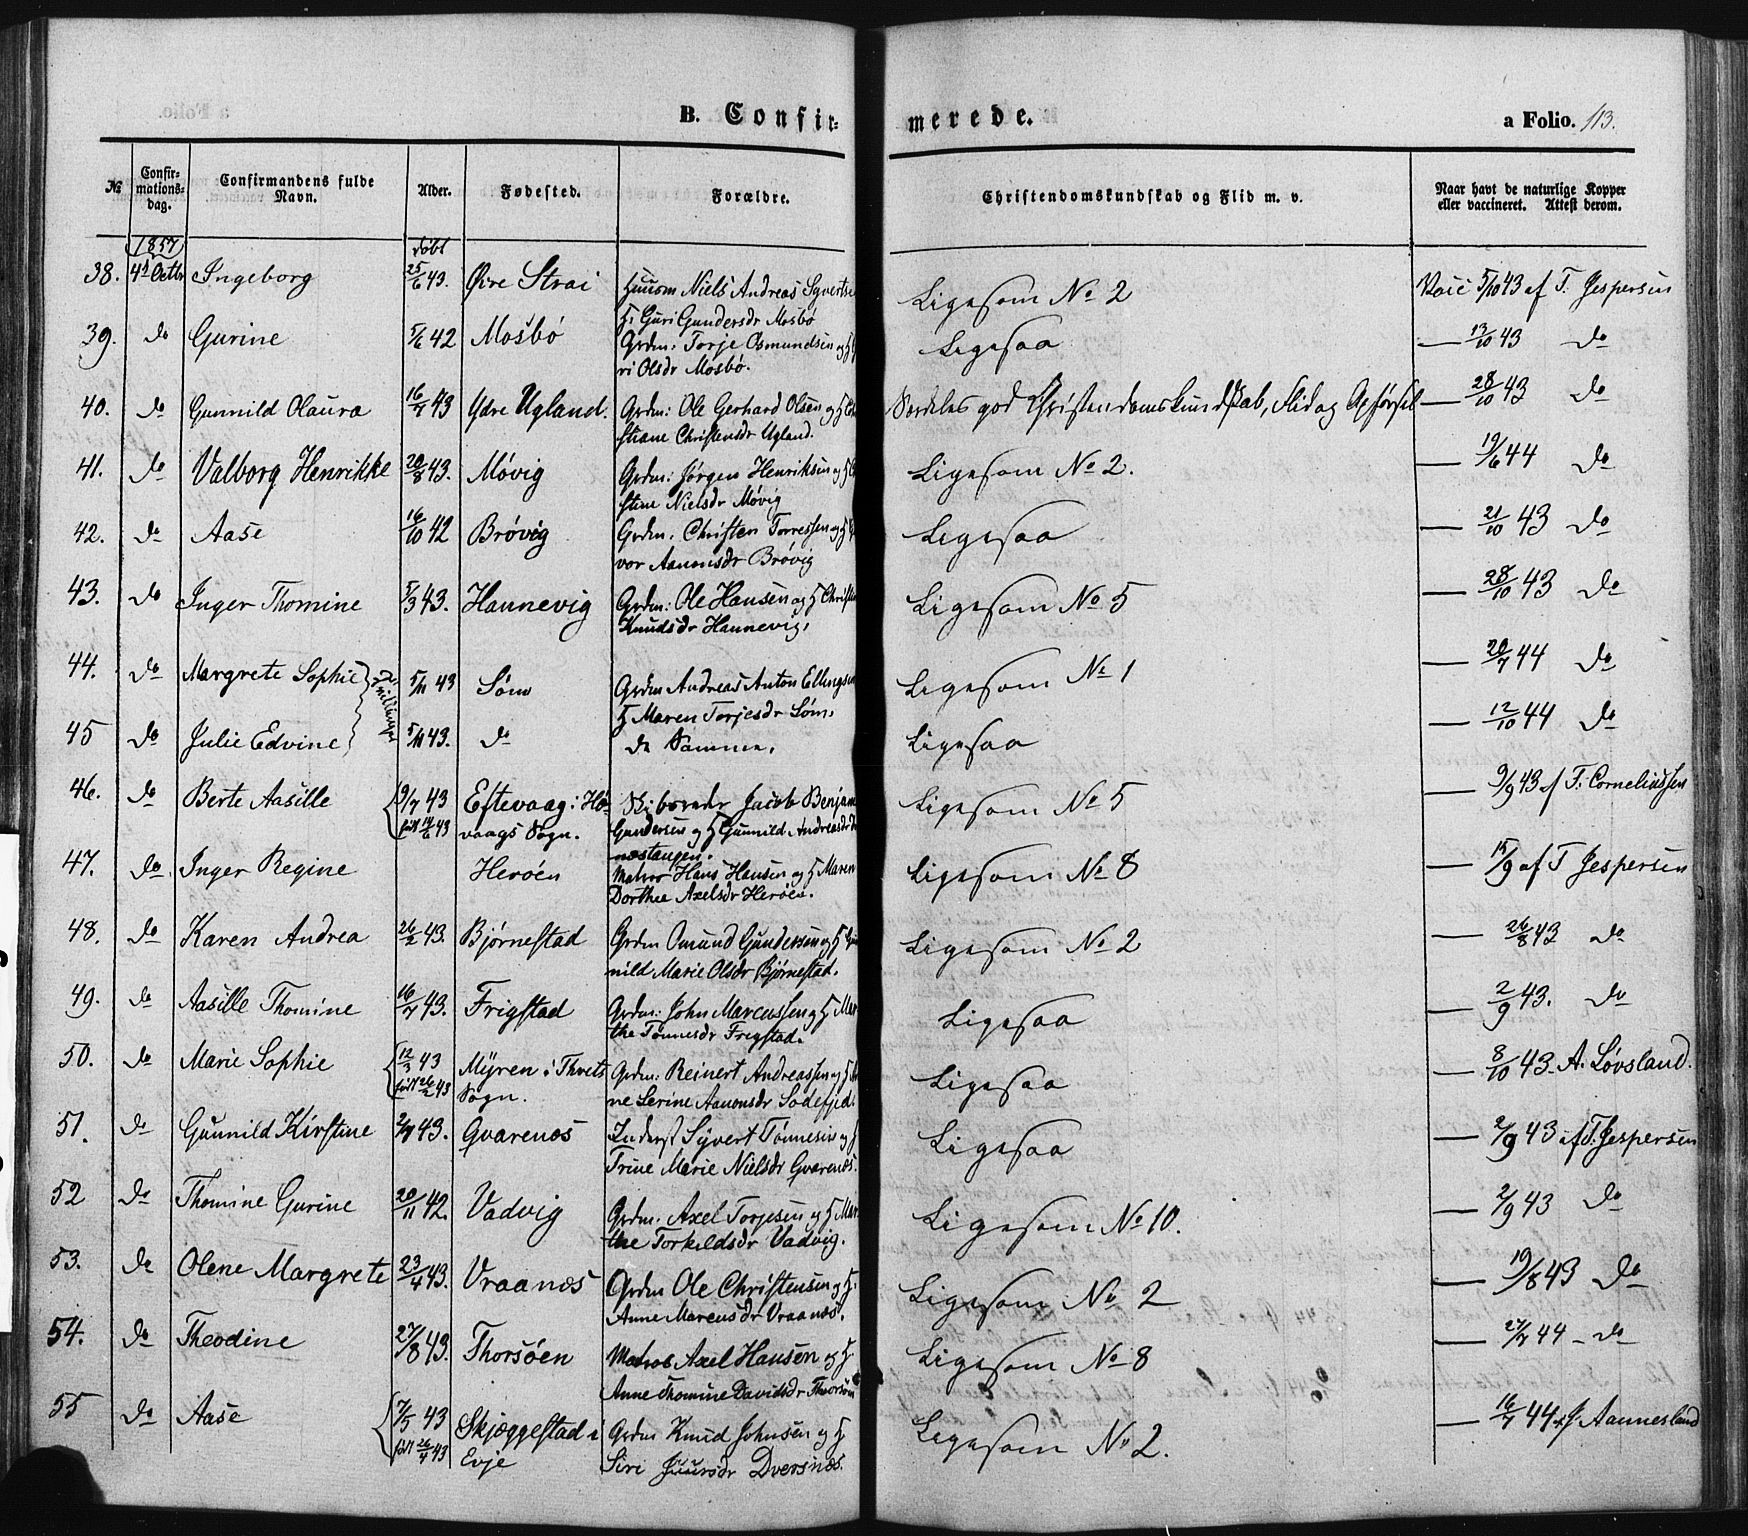 B. Confir-
merede.
a Folio. 113.
№
Confir-
mations-
dag.
Confirmandens fulde
Navn.
Alder.
Fødested.
Forældre.
Christendomskundskab og Flid m. v.
Naar havt de naturlige Kopper
eller vaccineret. Attest derom.
1857
døbt
38. 4d Octbr Ingeborg 25/6 43. Øvre Strai Huusm Niels Andreas Syvertse Ligesom No 2 Vacc 5/10 43 af T. Jespersen
H: Guri Gundersdr Mosbø
39. do Gurine 5/6 42 Mosbø Grdm: Torje Osmundsen og H Ligesaa — 13/10 43 do
ri Olsdr Mosbø.
40. do Gunnild Olaura 16/7 43 Ydre Ugland. Grdm: Ole Gerhard Olsen og H Særdeles god Christendomskundskab, Flid og Opførsel — 28/10 43 do
stiane Christensdr Ugland.
41. do Valborg Henrikke 20/8 43. Møvig Grdm: Jørgen Henriksen og H Ligesom No 2. — 19/6 44 do
stine Nielsdr Møvig
42. do Aase 16/10 42 Brøvig Grdm. Christen Torressen og H Ligesaa — 21/10 43 do
vor Aanonsdr Brøvig
43. do Inger Thomine 5/3 43. Hannevig Grdm: Ole Hansen og H Christi Ligesom No 5 — 28/10 43 do
Knudsdr Hannevig.
44. do Margrete Sophie Tvillinger 5/11 43 Søm Grdm Andreas Anton Ellingsen Ligesom No 1 — 20/7 44 do
H Maren Torjesdr Søm.
45 do Julie Edvine 5/11 43. do de Samme. Ligesaa — 12/10 44 do
46. do Berte Aasille 9/7 43 Eftevaag i Hø- Skibsreder Jacob Benjam Ligesom No 5 — 9/9 43 af T: Corneliussen
født 14/6 43 vaags Sogn. Gundersen og H Gunnild Andreasdr
næstangen.
47. do Inger Regine Herøen Matros Hans Hansen og H Maren Ligesom No 8 — 15/9 af T Jespersen
Dorthea Axelsdr Herøen.
48. do Karen Andrea 26/2 43. Bjørnestad Grdm Omund Gundersen og H Gun Ligesom No 2 — 26/8 43 do
nild Marie Olsdr Bjørnestad.
49. do Aasille Thomine 16/7 43. Frigstad Grdm: John Marcussen og H Mar Ligesaa — 2/9 43. do
the Tønnesdr Frigstad.
50. do Marie Sophie 12/3 43 Myren i Thveits Grdm: Reinert Andreassen og H Ligesaa — 8/10 43. A. Løvsland.
født 26/2 43 Sogn. ne Serine Aanonsdr Sodefjed.
51. do Gunnild Kirstine 2/7 43. Qvarenæs Inderst Syvert Tønnesen og H Ligesaa — 2/9 43 af T. Jespersen
Trine Marie Nielsdr Qvarenæs.
52 do Thomine Gurine 20/11 42. Vadvig Grdm. Axel Torjesen og H Mar Ligesom No 10. — 2/9 43 do
the Torkildsdr Vadvig.
53. do Olene Margrete 23/4 43. Vraanæs Grdm Ole Christensen og H. Ligesom No 2 — 19/8 43 do
Anne Marcusdr Vraanæs.
54. do Theodine 27/8 43. Thorsøen Matros Axel Hansen og H Ligesom No 8 — 27/7 44 – do
Anne Thomine Davidsdr Thorsøen
55 do Aase 7/5 43 Skjæggestad i Grdm Knud Johnsen og H Ligesom No 2. — 16/7 44 af J. Aannesland
født 26/4 43 Evje Siri Dversnæs.